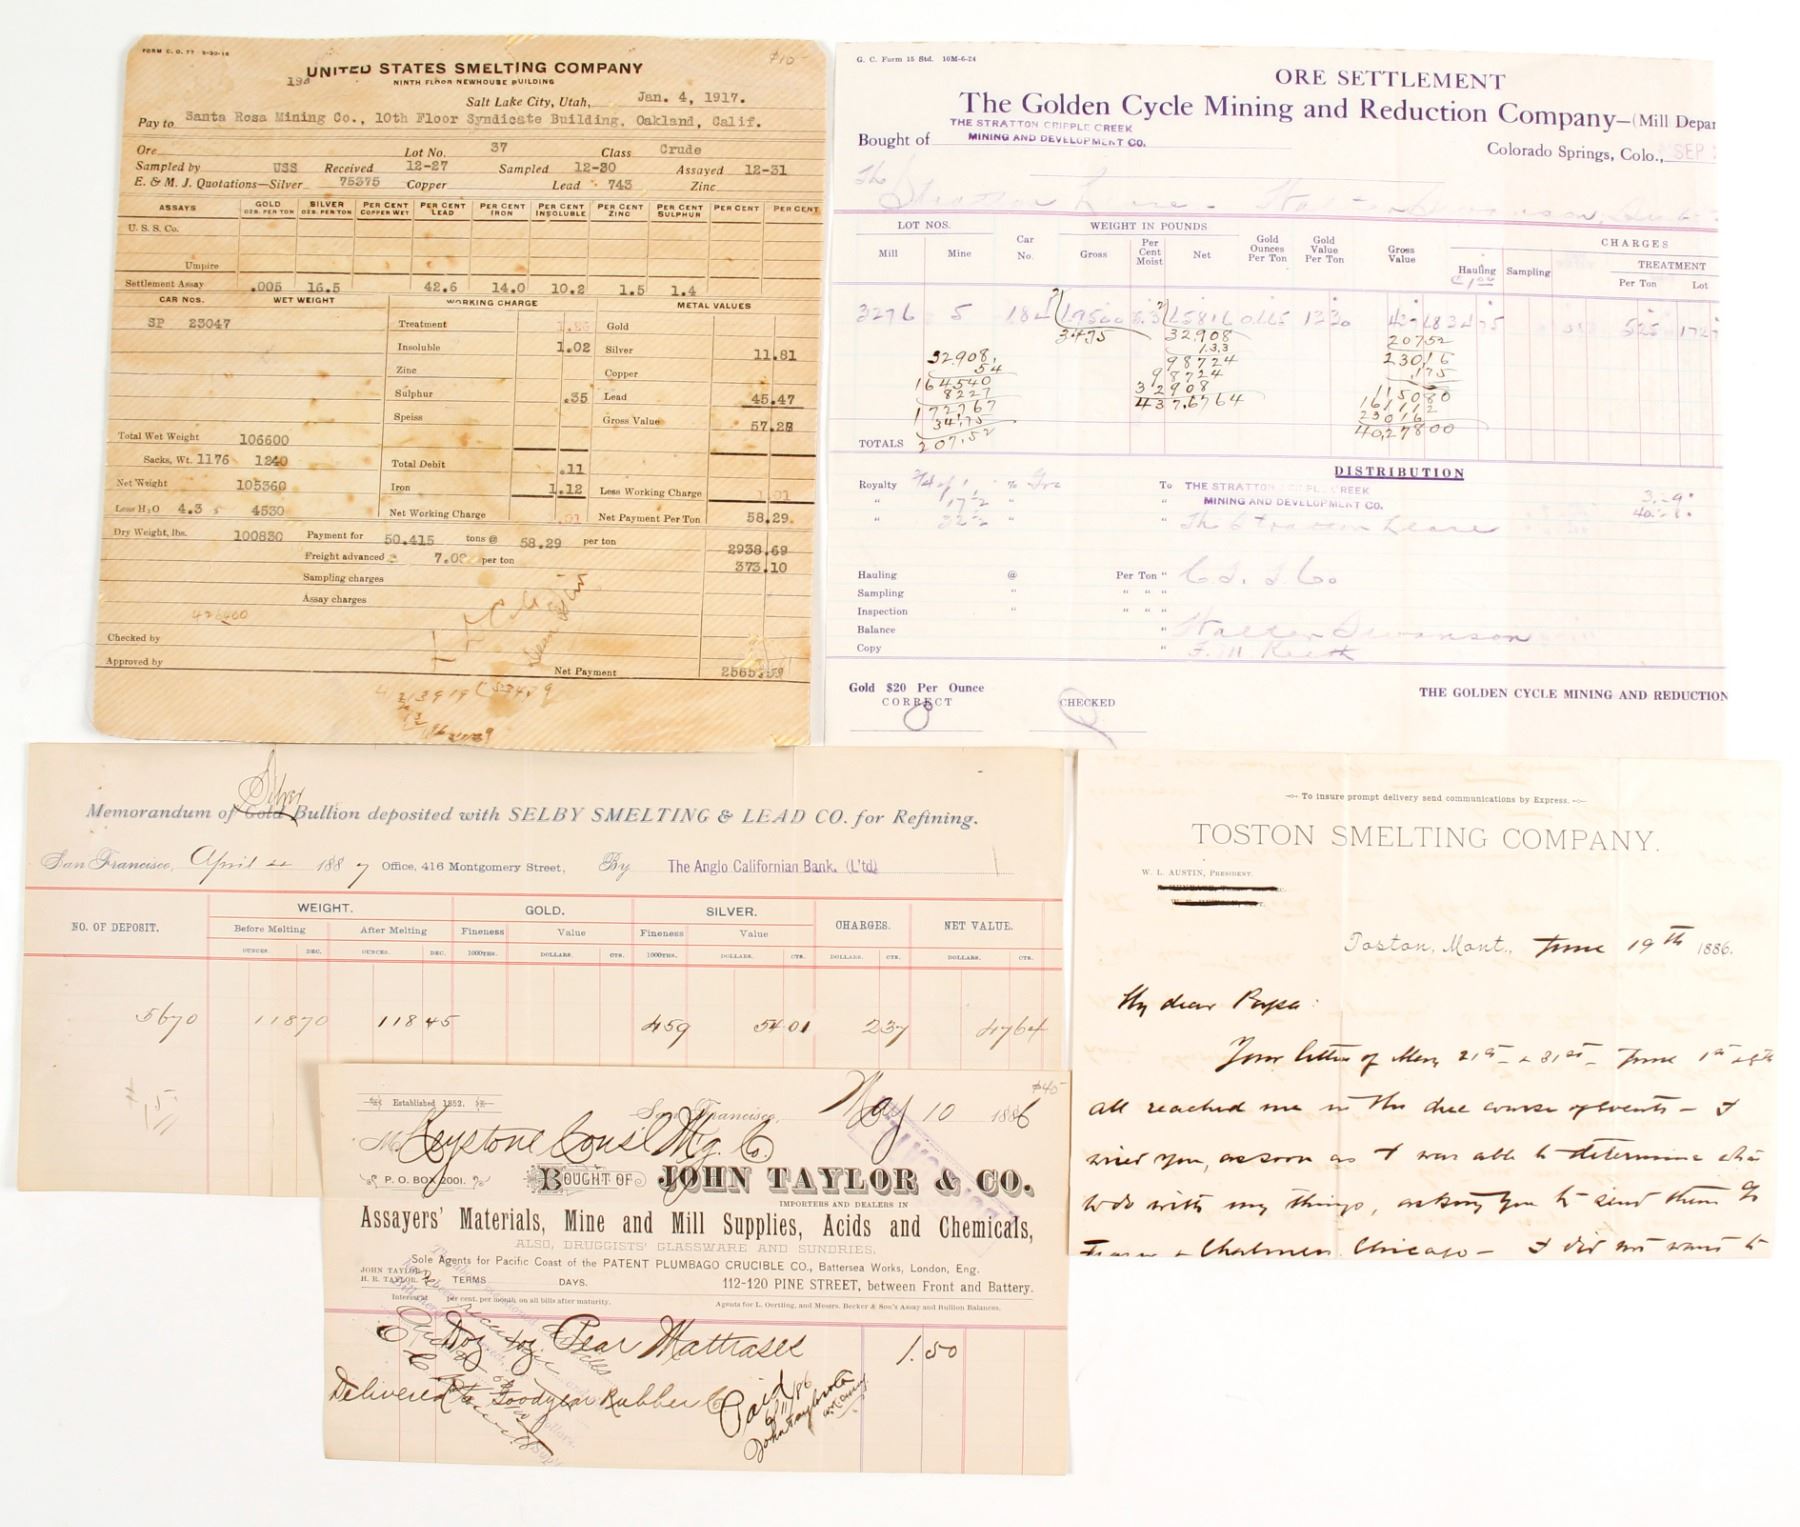 FORM C. O. 77 9-20-16
$10-
UNITED STATES SMELTING COMPANY
NINTH FLOOR NEWHOUSE BUILDING
Salt Lake City, Utah, Jan. 4, 1917.
Pay to Santa Rosa Mining Co., 10th Floor Syndicate Building, Oakland, Calif.
Ore Lot No. 37 Class Crude
Sampled by USS Received 12-27 Sampled 12-30 Assayed 12-31
E. & M. J. Quotations—Silver 75375 Copper Lead 743 Zinc
ASSAYS GOLD OZS. PER TON SILVER OZS. PER TON PER CENT COPPER WET PER CENT LEAD PER CENT IRON PER CENT INSOLUBLE PER CENT ZINC PER CENT SULPHUR PER CENT PER CENT
U. S. S. Co.
Umpire
Settlement Assay .005 16.5 42.6 14.0 10.2 1.5 1.4
CAR NOS. WET WEIGHT WORKING CHARGE METAL VALUES
SP 23047 Treatment Gold
Insoluble 1.02 Silver 11.81
Zinc Copper
Sulphur .35 Lead 45.47
Speiss Gross Value 57.28
Total Wet Weight 106600
Sacks, Wt. 1176 1240 Total Debit .11
Net Weight 105360 Iron 1.12 Less Working Charge 1.01
Less H2O 4.3 4530 Net Working Charge 1.01 Net Payment Per Ton 58.29
Dry Weight, lbs. 100830 Payment for 50.415 tons @ 58.29 per ton 2938.69
Freight advanced 7.00 per ton 373.10
Sampling charges
Assay charges
Checked by
Approved by Net Payment 2565.59
G. C. Form 15 Std. 10M-6-24
ORE SETTLEMENT
The Golden Cycle Mining and Reduction Company—(Mill Depar
Bought of THE STRATTON CRIPPLE CREEK
MINING AND DEVELOPMENT CO.
Colorado Springs, Colo., SEP
LOT NOS. WEIGHT IN POUNDS CHARGES
Mill Mine Car No. Gross Per Cent Moist Net Gold Ounces Per Ton Gold Value Per Ton Gross Value Hauling Sampling TREATMENT
Per Ton Lot
3276 5
3475 32.908 20752
32908 1.33 23016
54 98724 .175
164540 98724 115080
8227 32908 161112
172767 4376764 23016
34.75 4027800
TOTALS 207.52
DISTRIBUTION
Royalty To THE STRATTON CRIPPLE CREEK
" 17½ " " MINING AND DEVELOPMENT CO.
" 22½ " " The Stratton Lease
Hauling @ Per Ton "
Sampling " " " "
Inspection " " " "
Balance " Walter Swanson
Copy "
Gold $20 Per Ounce
CORRECT CHECKED
THE GOLDEN CYCLE MINING AND REDUCTION
Silver
Memorandum of Gold Bullion deposited with SELBY SMELTING & LEAD CO. for Refining.
San Francisco, April 1887 Office, 416 Montgomery Street, By The Anglo Californian Bank. (L'td)
NO. OF DEPOSIT. WEIGHT. GOLD. SILVER. CHARGES. NET VALUE.
Before Melting After Melting Fineness Value Fineness Value
OUNCES. DEC. OUNCES. DEC. 1000THS. DOLLARS. CTS. 1000THS. DOLLARS. CTS. DOLLARS. CTS. DOLLARS. CTS.
5670 118 70 118 45 459 54 01 2 37
$45-
Established 1852.
San Francisco, May 10 1886
M Keystone Consl Mg. Co.
P. O. BOX 2001. BOUGHT OF JOHN TAYLOR & CO.
IMPORTERS AND DEALERS IN
Assayers' Materials, Mine and Mill Supplies, Acids and Chemicals,
ALSO, DRUGGISTS' GLASSWARE AND SUNDRIES,
Sole Agents for Pacific Coast of the PATENT PLUMBAGO CRUCIBLE CO., Battersea Works, London, Eng.
JOHN TAYLOR.
H. R. TAYLOR. TERMS DAYS. 112-120 PINE STREET, between Front and Battery.
Interest at per cent. per month on all bills after maturity. Agents for L. Oertling, and Messrs. Becker & Son's Assay and Bullion Balances.
1.50
Delivered to Goodyear Rubber Co
Paid
6/11/86
John Taylor & Co
-- To insure prompt delivery send communications by Express. --
TOSTON SMELTING COMPANY.
W. L. AUSTIN, PRESIDENT.
Toston, Mont., June 19th 1886.
My dear Papa:
Your letters of May 21st & 31st June 1st &
all reached me in the due course of events - I
wired you, as soon as I was able to determine
to do with my things, asking you to send them
Fraser & Chalmers Chicago - I did not want to